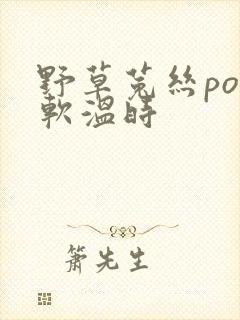 野草菟絲po
軟溫時
簫先生